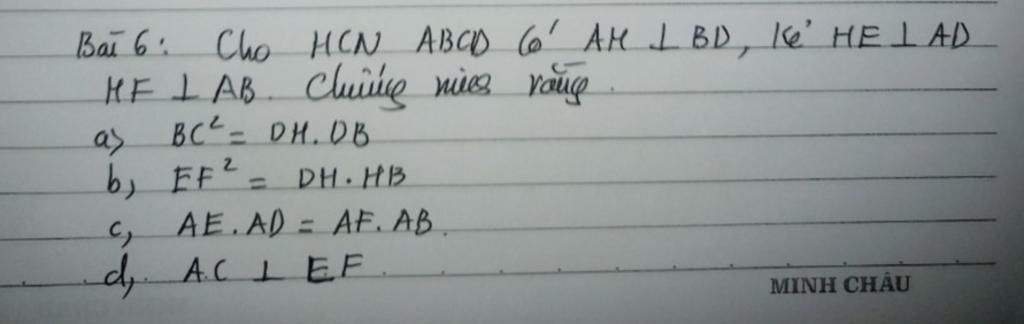 Bài 6: Cho HCN ABCD có AH ⊥ BD, kẻ HE ⊥ AD
HF ⊥ AB. Chứng minh rằng.
a) BC² = DH.DB
b, EF² = DH.HB
c, AE.AD = AF.AB.
d, AC ⊥ EF
MINH CHÂU